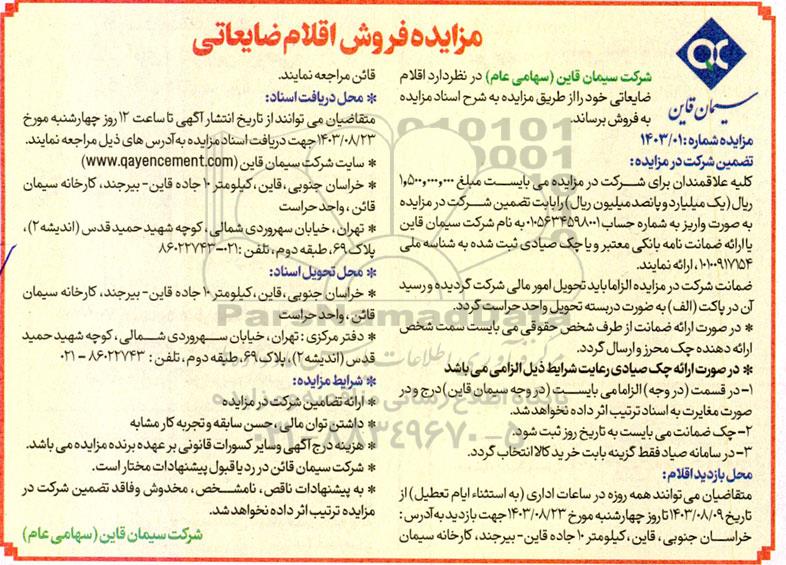 مزایده فروش اقلام ضایعاتی
سیمان قاین
شرکت سیمان قاین (سهامی عام) در نظر دارد اقلام
ضایعاتی خود را از طریق مزایده به شرح اسناد مزایده
به فروش برساند.
مزایده شماره: ۱۴۰۳/۰۱
تضمین شرکت در مزایده :
کلیه علاقمندان برای شرکت در مزایده می بایست مبلغ ۱,۵۰۰,۰۰۰,۰۰۰
ریال (یک میلیارد و پانصد میلیون ریال) را بابت تضمین شرکت در مزایده
به صورت واریز به شماره حساب ۰۱۰۵۶۳۴۵۹۸۰۰۱ به نام شرکت سیمان قاین
یا ارائه ضمانت نامه بانکی معتبر و یا چک صیادی ثبت شده به شناسه ملی
۱۰۱۰۰۹۱۷۱۵۴، ارائه نمایند.
ضمانت شرکت در مزایده الزاما باید تحویل امور مالی شرکت گردیده و رسید
آن در پاکت (الف) به صورت دربسته تحویل واحد حراست گردد.
* در صورت ارائه ضمانت از طرف شخص حقوقی می بایست سمت شخص
ارائه دهنده چک محرز و ارسال گردد.
* در صورت ارائه چک صیادی رعایت شرایط ذیل الزامی می باشد
۱- در قسمت (در وجه) الزاما می بایست (در وجه سیمان قاین) درج و در
صورت مغایرت به اسناد ترتیب اثر داده نخواهد شد.
۲- چک ضمانت می بایست به تاریخ روز ثبت شود.
۳- در سامانه صیاد فقط گزینه بابت خرید کالا انتخاب گردد.
محل بازدید اقلام:
متقاضیان می توانند همه روزه در ساعات اداری (به استثناء ایام تعطیل) از
تاریخ ۱۴۰۳/۰۸/۰۹ تا روز چهارشنبه مورخ ۱۴۰۳/۰۸/۲۳ جهت بازدید به آدرس :
خراسان جنوبی ، قاین ، کیلومتر ۱۰ جاده قاین - بیرجند، کارخانه سیمان
قائن مراجعه نمایند.
* محل دریافت اسناد:
متقاضیان می توانند از تاریخ انتشار آگهی تا ساعت ۱۲ روز چهارشنبه مورخ
۱۴۰۳/۰۸/۲۳ جهت دریافت اسناد مزایده به آدرس های ذیل مراجعه نمایند.
* سایت شرکت سیمان قاین (www.qayencement.com)
* خراسان جنوبی ، قاین ، کیلومتر ۱۰ جاده قاین - بیرجند، کارخانه سیمان
قائن ، واحد حراست
* تهران ، خیابان سهروردی شمالی ، کوچه شهید حمید قدس (اندیشه ۲)،
پلاک ۶۹، طبقه دوم ، تلفن : ۰۲۱-۸۶۰۲۲۷۴۳
* محل تحویل اسناد:
* خراسان جنوبی ، قاین ، کیلومتر ۱۰ جاده قاین - بیرجند، کارخانه سیمان
قائن ، واحد حراست
* دفتر مرکزی : تهران ، خیابان سهروردی شمالی ، کوچه شهید حمید
قدس (اندیشه ۲)، پلاک ۶۹، طبقه دوم ، تلفن : ۸۶۰۲۲۷۴۳ - ۰۲۱
* شرایط مزایده:
* ارائه تضامین شرکت در مزایده
* داشتن توان مالی ، حسن سابقه و تجربه کار مشابه
* هزینه درج آگهی و سایر کسورات قانونی بر عهده برنده مزایده می باشد.
* شرکت سیمان قائن در رد یا قبول پیشنهادات مختار است.
* به پیشنهادات ناقص ، نامشخص ، مخدوش و فاقد تضمین شرکت در
مزایده ترتیب اثر داده نخواهد شد.
شرکت سیمان قاین (سهامی عام)
ParsNamadData
۰۲۱-۸۸۳۴۹۶۷۰-۵